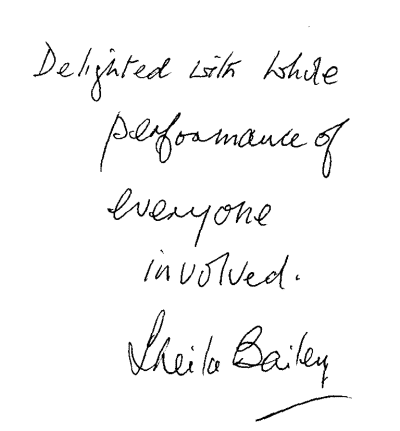 Delighted with whole
performance of
everyone
involved.
Sheila Bailey